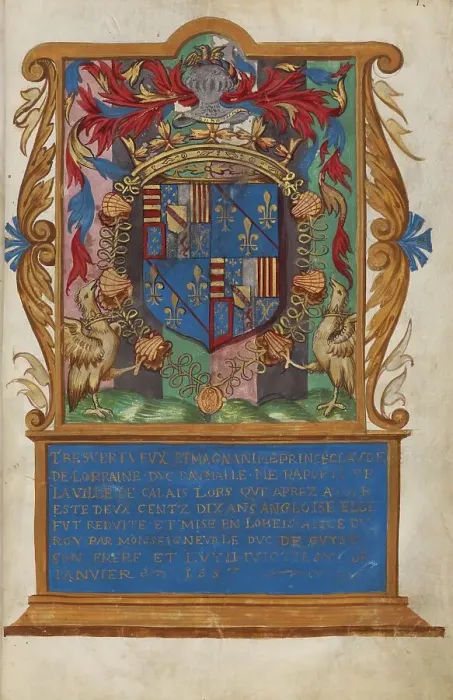 TRESVERTUEUX ET MAGNANIME PRINCE CLAUDE
DE LORRAINE DUC DAUMALLE ME
LA VILLE DE CALAIS LORS QUE APREZ
ESTE DEUX CENTZ DIX ANS ANGLOISE ELLE
FUT REDUITE ET MISE EN LOBEISSANCE DU
ROY PAR MONSEIGNEUR LE DUC DE GUYSE
SON FRERE ET LUY
IANVIER